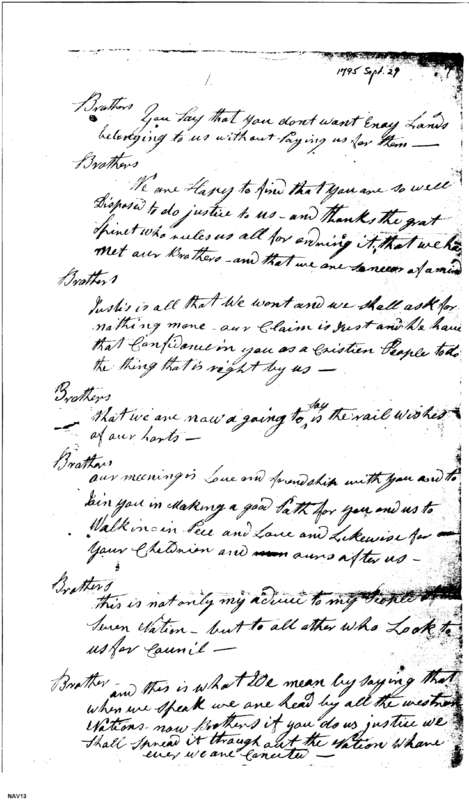 1795 Sept. 29
7
Brothers
You Say that you dont want Enay Lands
belonging to us without Paying us for them —
Brothers
We are Hapey to find that you are so well
Disposed to do justice to us – and thanks the grat
Spiret who rules us all for ordring it, that we have
met our Brothers – and that we are so near of a mind
Brothers
Justis is all that We wont and we shall ask for
nothing more – our Claim is Just and We have
that Confidance in you as a Cristien People to do
the thing that is right by us —
Brothers
that we are now a going to say is the rail wishes
of our harts —
Brothers
our meening is Love and friendship with you and to
Join you in Making a good Path for you and us to
Walk in – in Pece and Love and Likewise for
your Children and ours after us –
Brothers
this is not only my advice to my People of the
Seven Nation – but to all other who Look to
us for Council —
Brother –
and this is what We mean by saying that
when we speak we are head by all the western
Nations – now Brothers if you do us justice we
Shall Spread it through out the Nation Whare
ever we are Conected —
NAV13